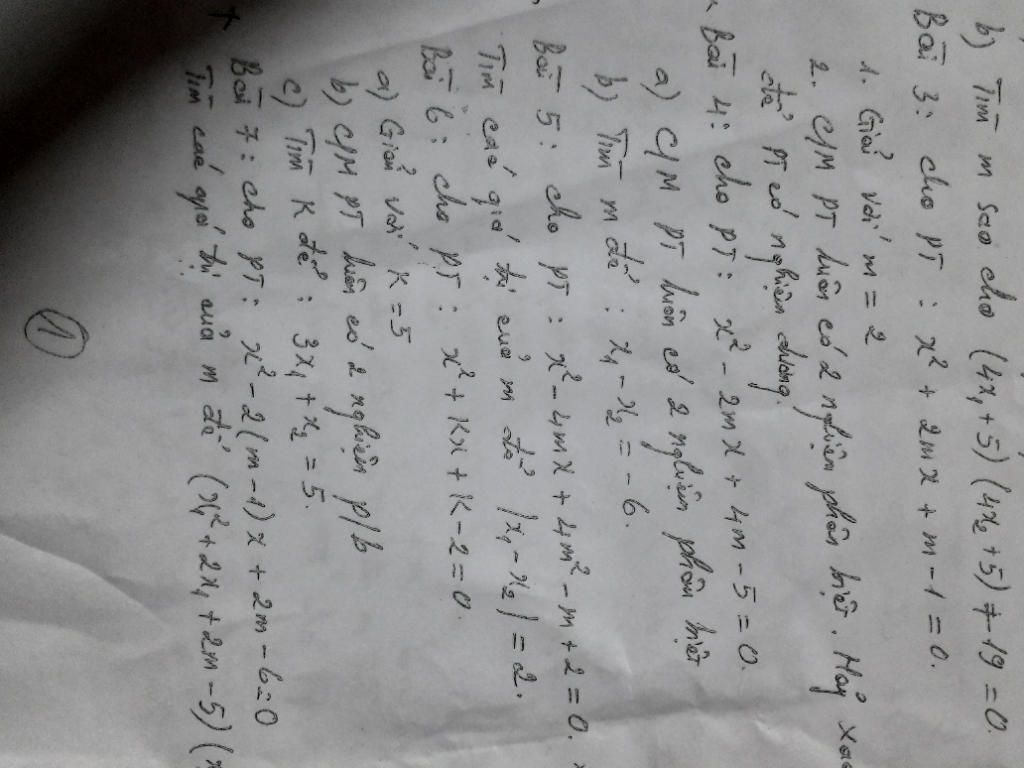 b) Tìm m sao cho (4x₁ + 5)(4x₂ + 5) + 19 = 0.
Bài 3: cho PT: x² + 2mx + m - 1 = 0.
1. Giải với m = 2
2. C/M PT luôn có 2 nghiệm phân biệt. Hãy
để PT có nghiệm dương.
Bài 4: cho PT: x² - 2mx + 4m - 5 = 0.
a) C/M PT luôn có 2 nghiệm phân biệt
b) Tìm m để: x₁ - x₂ = -6.
Bài 5: cho PT: x² - 4mx + 4m² - m + 2 = 0.
Tìm các giá trị của m để |x₁ - x₂| = 2.
Bài 6: cho PT: x² + Kx + K - 2 = 0.
a) Giải với K = 5
b) C/M PT luôn có 2 nghiệm p/b
c) Tìm K để: 3x₁ + x₂ = 5.
Bài 7: cho PT: x² - 2(m - 1)x + 2m - 6 = 0
Tìm các giá trị của m để (x₁² + 2x₁ + 2m - 5)(
1